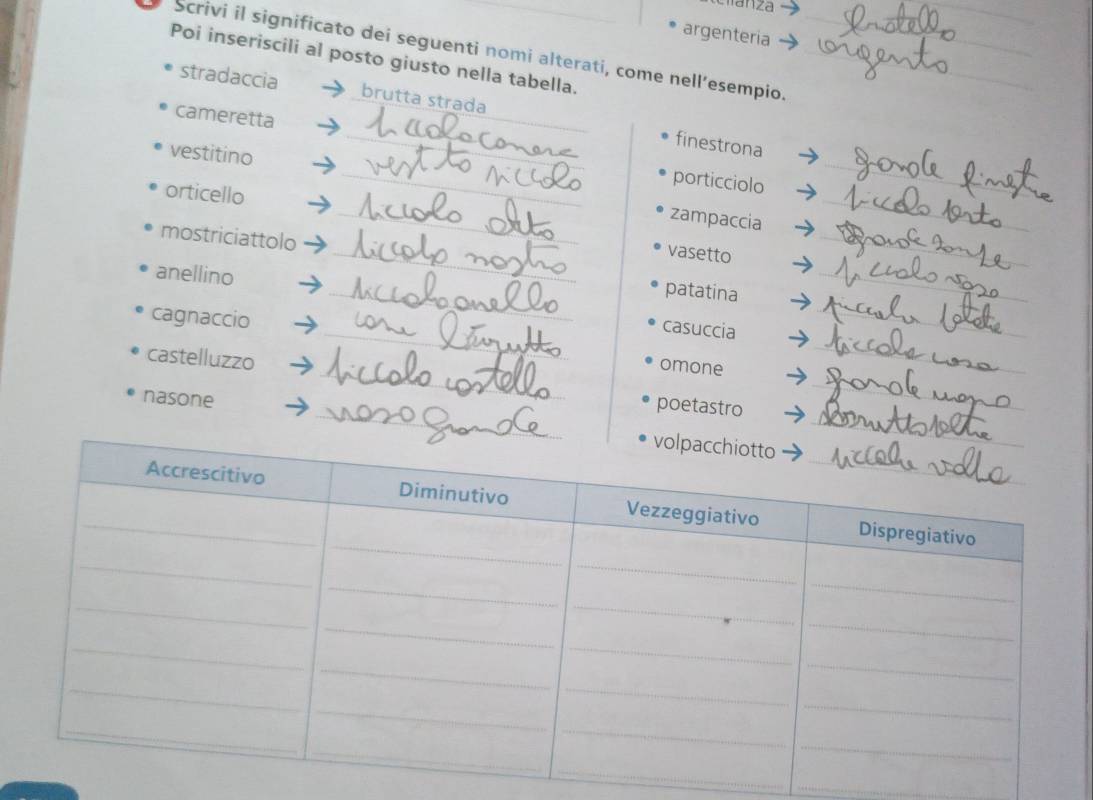 fratello
argenteria → argento
Scrivi il significato dei seguenti nomi alterati, come nell'esempio.
Poi inseriscili al posto giusto nella tabella.
• stradaccia → brutta strada
• cameretta → piccola camera
• vestitino → vestito piccolo
• orticello → piccolo orto
• mostriciattolo → piccolo mostro
• anellino → piccolo anello
• cagnaccio → cane brutto
• castelluzzo → piccolo castello
• nasone → naso grande
• finestrona → grande finestra
• porticciolo → piccolo porto
• zampaccia → zampe
• vasetto → piccolo vaso
• patatina → piccola patata
• casuccia → piccola casa
• omone → grande uomo
• poetastro →
• volpacchiotto → piccola volpe
Accrescitivo Diminutivo Vezzeggiativo Dispregiativo